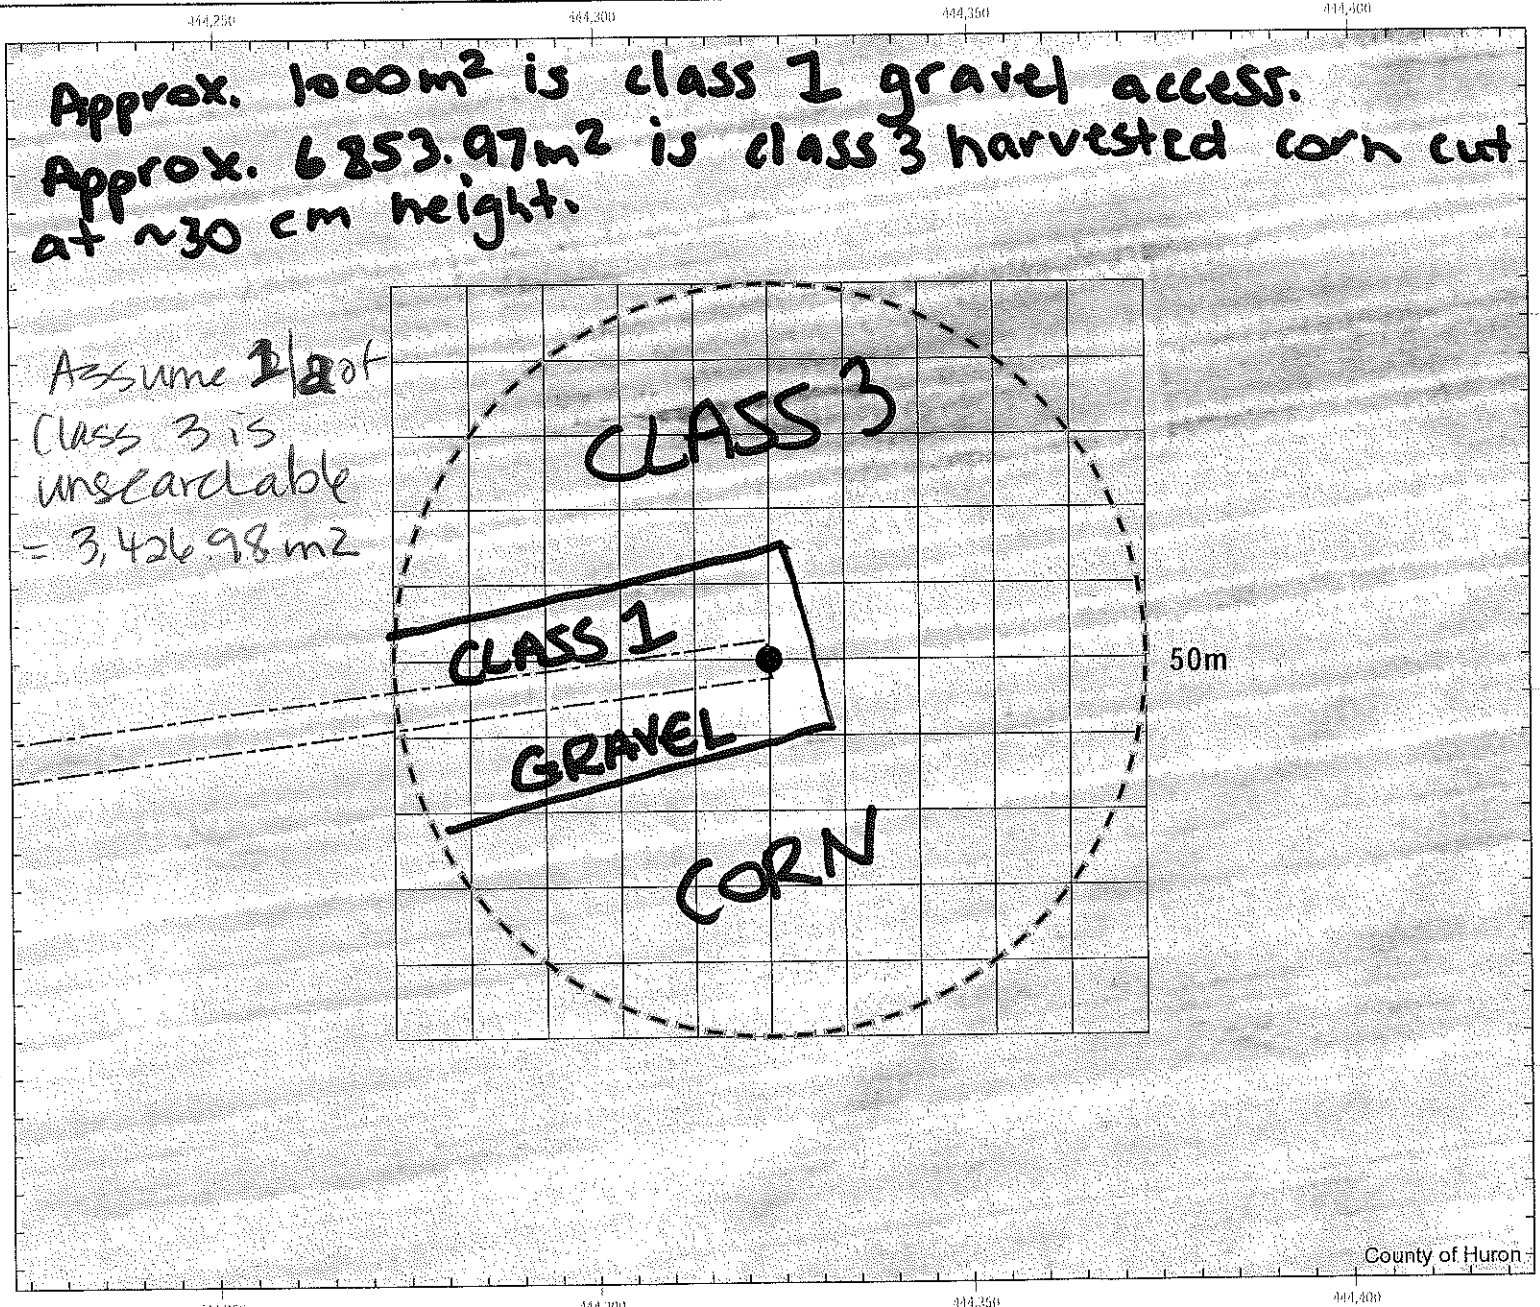 444,250 444,300 444,350 444,400
Approx. 1000m² is class 1 gravel access.
Approx. 6853.97m² is class 3 harvested corn cut
at ~30 cm height.
Assume 1/2 of
Class 3 is
unsearchable
= 3,426 98 m2
CLASS 3
CLASS 1
GRAVEL
CORN
50m
County of Huron
444,300 444,350 444,400